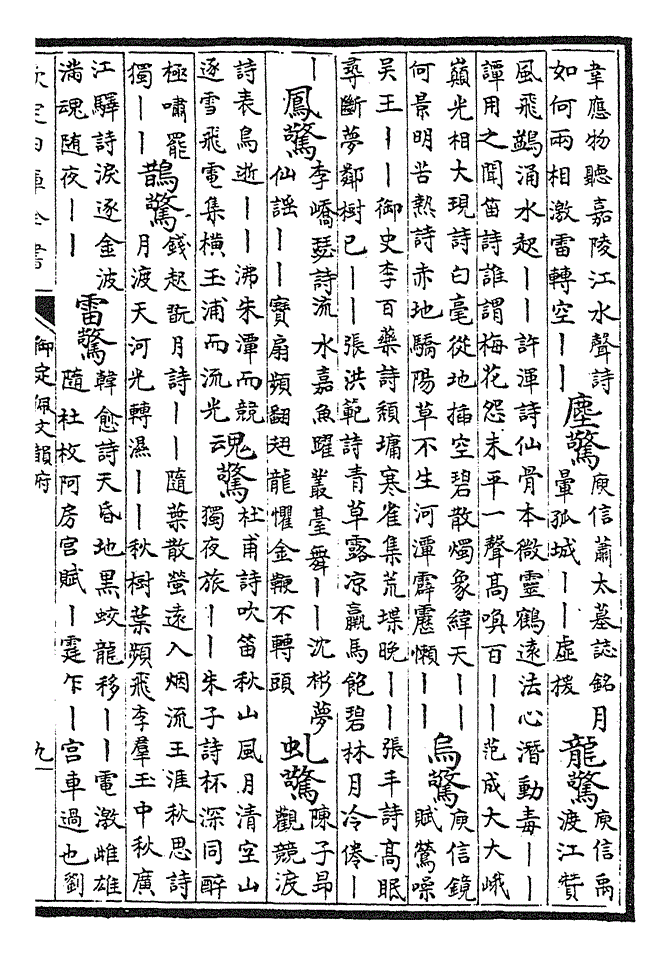 韋應物聽嘉陵江水聲詩
如何兩相激雷轉空丨丨
塵驚
庾信蕭太墓誌銘月
暈孤城丨丨虛援
龍驚
庾信禹
渡江贊
風飛鷁涌水起丨丨許渾詩仙骨本微靈鶴遠法心潛動毒丨丨
譚用之聞笛詩誰謂梅花怨未平一聲高喚百丨丨范成大大峨
巔光相大現詩白毫從地插空碧散燭象緯天丨丨
何景明苦熱詩赤地驕陽草不生河潭霹靂懶丨丨
烏驚
庾信鏡
賦鶯噪
吳王丨丨御史李百藥詩頹墉寒雀集荒堞晚丨丨張丰詩高眠
尋斷夢鄰樹已丨丨張洪範詩青草露凉羸馬飽碧林月冷倦丨
丨
鳳驚
李嶠瑟詩流水嘉魚躍叢臺舞丨丨沈彬夢
仙謡丨丨寶扇頻翻翅龍懼金鞭不轉頭
虬驚
陳子昂
觀競渡
詩表烏逝丨丨沸朱潭而競
逐雪飛電集橫玉浦而流光
魂驚
杜甫詩吹笛秋山風月清空山
獨夜旅丨丨朱子詩杯深同醉
極嘯罷
獨丨丨
鵲驚
錢起翫月詩丨丨隨葉散螢遠入烟流王涯秋思詩
月渡天河光轉濕丨丨秋樹葉頻飛李羣玉中秋廣
江驛詩淚逐金波
滿魂隨夜丨丨
雷驚
韓愈詩天昏地黑蛟龍移丨丨電激雌雄
隨杜牧阿房宮賦丨霆乍丨宮車過也劉
欽定四庫全書
御定佩文韻府
九